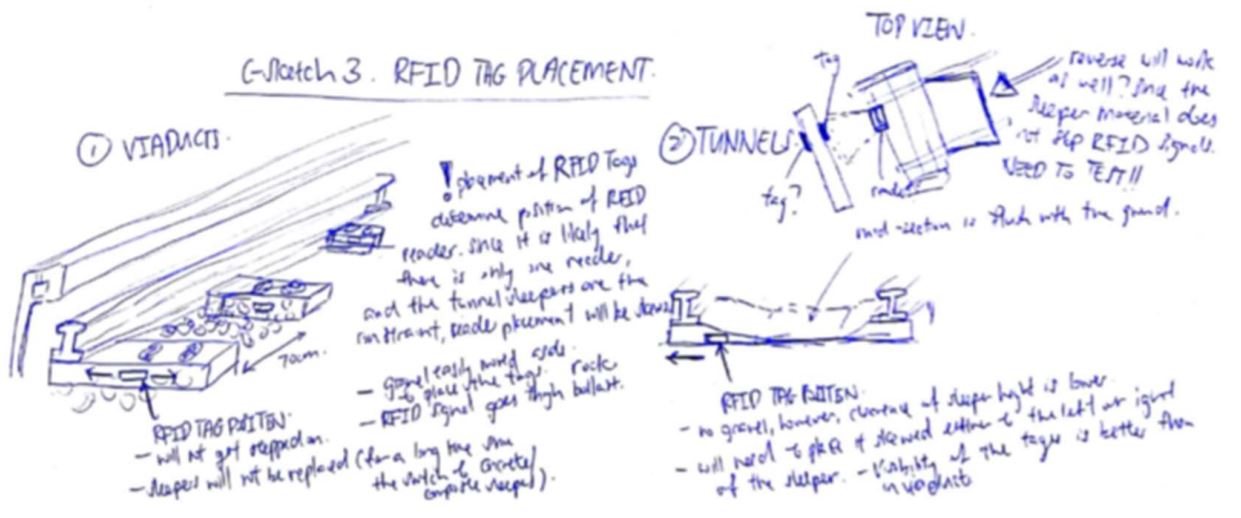 C-Sketch 3. RFID TAG PLACEMENT.
① VIADUCTS.
! placement of RFID Tags
determine position of RFID
reader. Since it is likely that
there is only one reader,
and the tunnel sleepers are the
constraint, reader placement will be
- Gravel easily moved aside
to place the tags.
- RFID signal goes through rock ballast.
70cm.
RFID TAG POSITION.
- will not get stepped on.
- sleepers will not be replaced (for a long time since
the switch to concrete/
composite sleepers).
TOP VIEW.
tag
reverse will work
as well? Since the
sleeper material does
not stop RFID signals.
NEED TO TEST!!
② TUNNELS.
tag?
reader
section is flush with the ground.
RFID TAG POSITION.
- no gravel, however, clearance at sleeper height is lower.
- will need to place it skewed either to the left or right
of the sleeper. - Visibility of the tags is better than
in viaduct